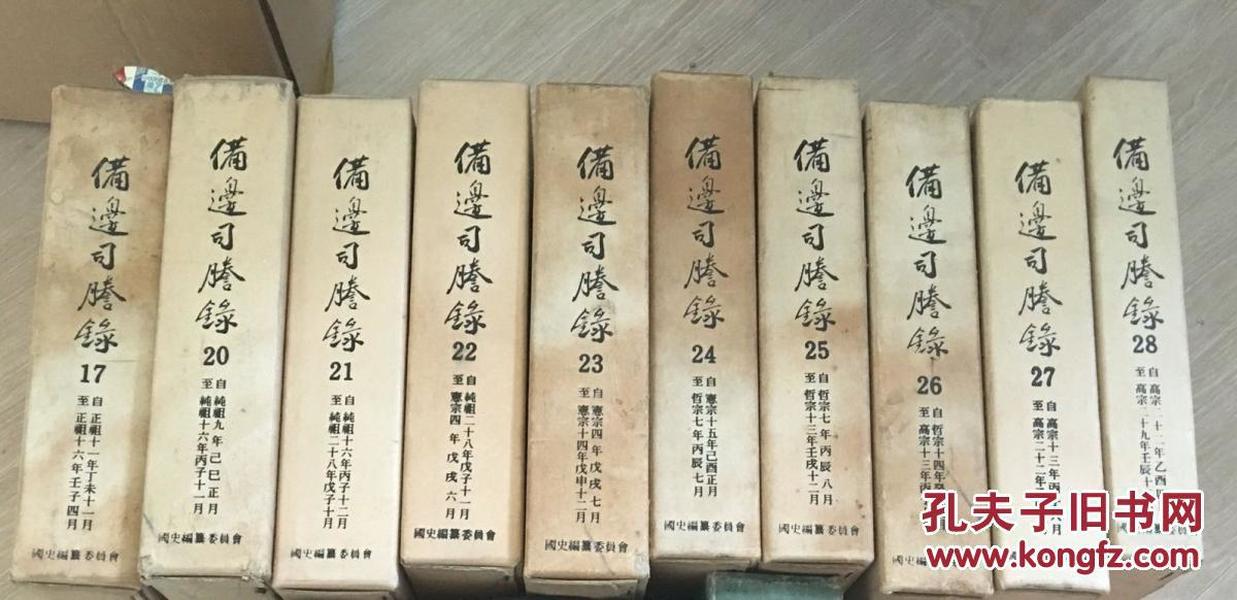 備邊司謄錄
17
自 正祖十一年丁未十一月
至 正祖十六年壬子四月
國史編纂委員會
備邊司謄錄
20
自 純祖九年己巳正月
至 純祖十六年丙子十一月
國史編纂委員會
備邊司謄錄
21
自 純祖十六年丙子十二月
至 純祖二十八年戊子十月
國史編纂委員會
備邊司謄錄
22
自 純祖二十八年戊子十一月
至 憲宗四年戊戌六月
國史編纂委員會
備邊司謄錄
23
自 憲宗四年戊戌七月
至 憲宗十四年戊申十二月
國史編纂委員會
備邊司謄錄
24
自 憲宗十五年己酉正月
至 哲宗七年丙辰七月
國史編纂委員會
備邊司謄錄
25
自 哲宗七年丙辰八月
至 哲宗十三年壬戌十二月
國史編纂委員會
備邊司謄錄
26
自 哲宗十四年
至 高宗十三年丙
國史編
備邊司謄錄
27
自 高宗十三年丙
至 高宗二十二年
備邊司謄錄
28
自 高宗二十二年乙酉
至 高宗二十九年壬辰十
孔夫子旧书网
www.kongfz.com